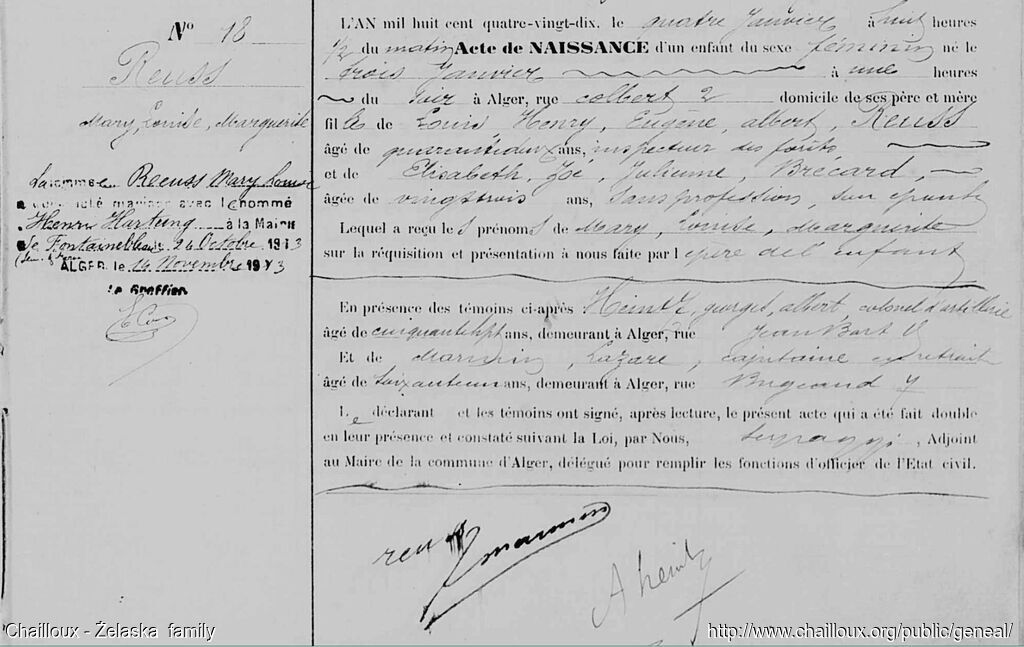 N° 18
Reuss
Mary, Louise, Marguerite
La nommée Reuss Mary Louise
a contracté mariage avec le nommé
Henri Hartung à la Mairie
de Fontainebleau 24 Octobre 1913
ALGER, le 14 Novembre 1913
Le Greffier
L'AN mil huit cent quatre-vingt-dix, le quatre Janvier à huit heures
1/2 du matin Acte de NAISSANCE d'un enfant du sexe féminin né le
trois Janvier à une heures
du soir à Alger, rue colbert 2 domicile de ses père et mère
fille de Louis, Henry, Eugène, albert, Reuss
âgé de quarantedeux ans, inspecteur des forêts
et de Elisabeth, Zoé, Julienne, Brécard,
âgée de vingttrois ans, sans profession, son épouse
Lequel a reçu les prénoms de Mary, Louise, Marguerite
sur la réquisition et présentation à nous faite par le père de l'enfant
En présence des témoins ci-après Heintz, georges, albert, colonel d'artillerie
âgé de cinquantesept ans, demeurant à Alger, rue Jean Bart
Et de Marmin, Lazare, capitaine en retraite
âgé de soixanteun ans, demeurant à Alger, rue Bugeaud 7
Le déclarant et les témoins ont signé, après lecture, le présent acte qui a été fait double
en leur présence et constaté suivant la Loi, par Nous, , Adjoint
au Maire de la commune d'Alger, délégué pour remplir les fonctions d'officier de l'Etat civil.
reuss marmin
A heintz
Chailloux - Żelaska family
http://www.chailloux.org/public/geneal/